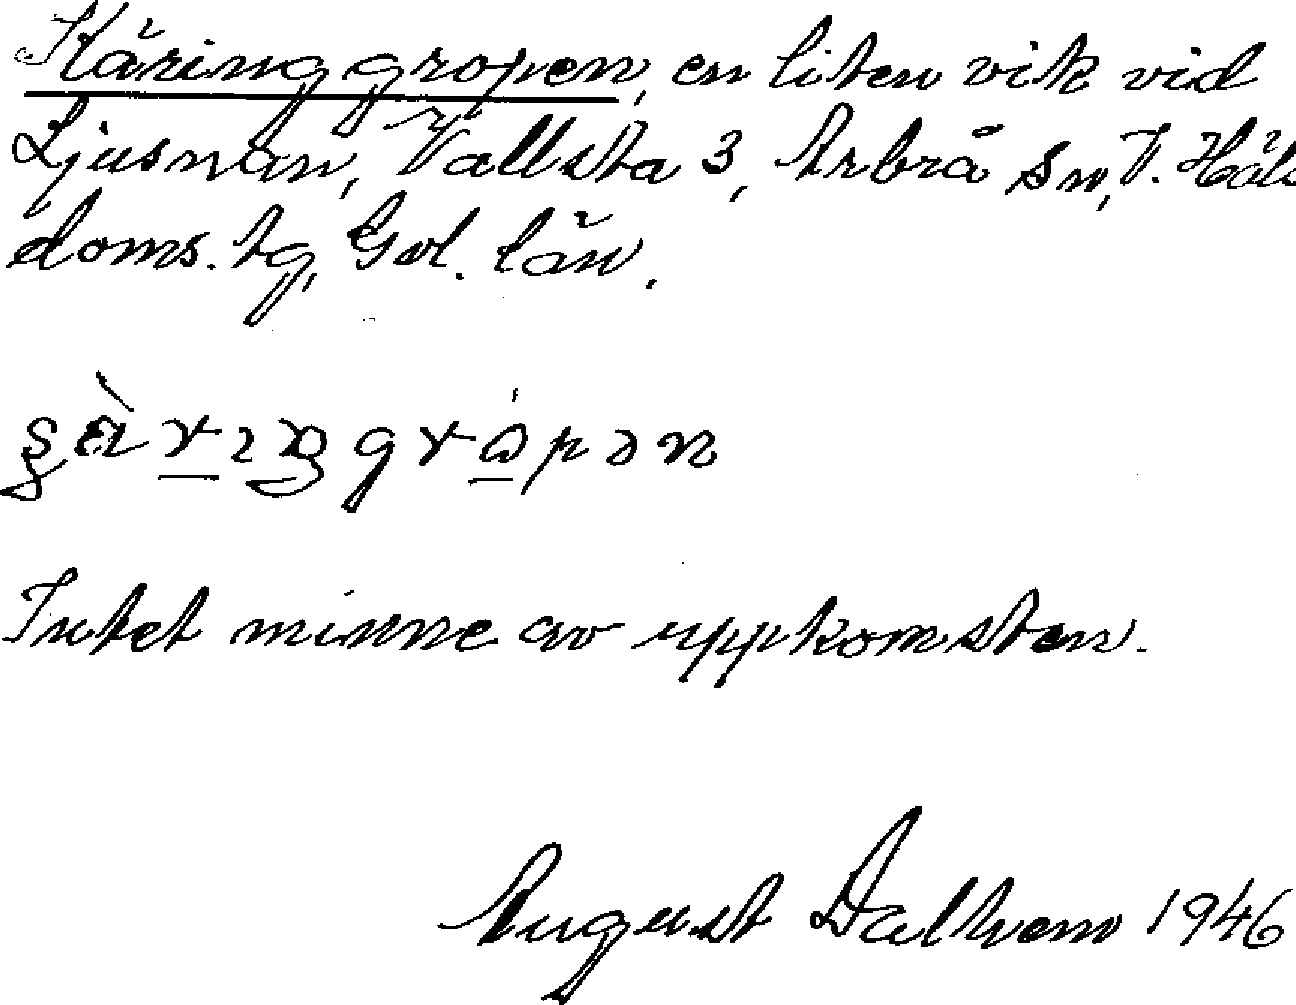 Käringgropen, en liten vik vid
Ljusnan, Vallsta 3, Arbrå sn, V. Häls
doms. tg, Gvl. län.
Intet minne av uppkomsten.
August Daltrem 1946